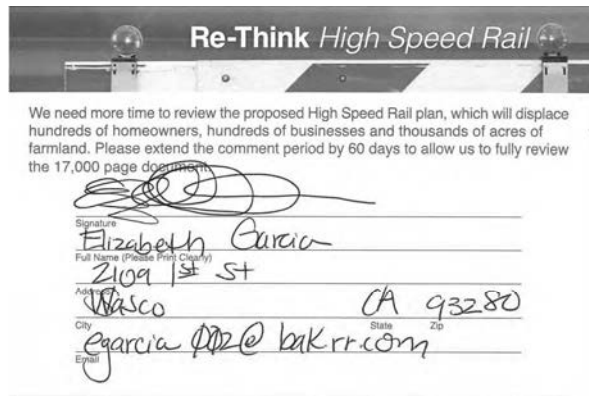 Re-Think High Speed Rail
We need more time to review the proposed High Speed Rail plan, which will displace
hundreds of homeowners, hundreds of businesses and thousands of acres of
farmland. Please extend the comment period by 60 days to allow us to fully review
the 17,000 page document.
Signature
Elizabeth Garcia
Full Name (Please Print Clearly)
2109 1st St
Address
Wasco CA 93280
City State Zip
egarcia002@bak.rr.com
Email